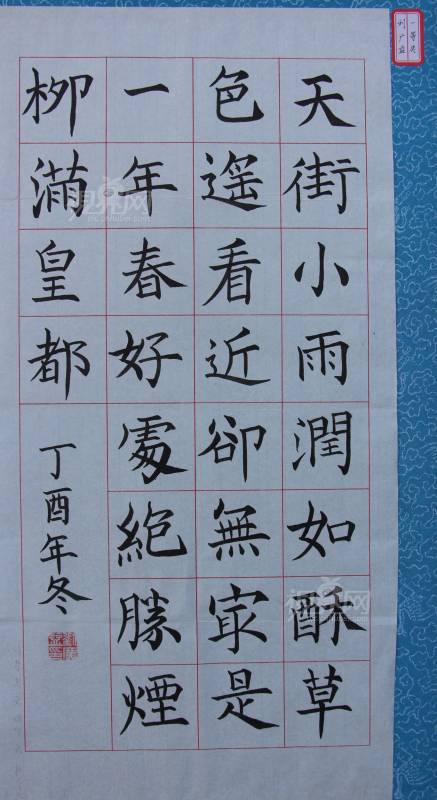 天街小雨潤如酥草
色遥看近卻無冣是
一年春好處絶勝煙
柳滿皇都
丁酉年冬
一等奖